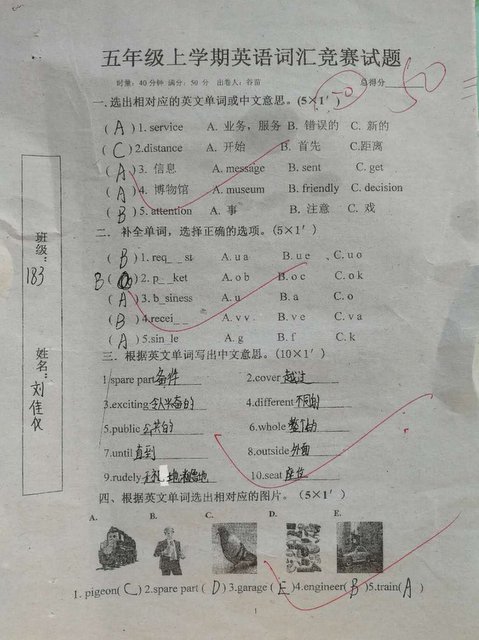 五年级上学期英语词汇竞赛试题
时量：40分钟 满分：50 分 出卷人：谷苗 总得分 50
一.选出相对应的英文单词或中文意思。(5×1′) 50
( A ) 1. service A. 业务，服务 B. 错误的 C. 新的
( C ) 2.distance A. 开始 B. 首先 C.距离
( A ) 3. 信息 A. message B. sent C. get
( A ) 4. 博物馆 A. museum B. friendly C. decision
( B ) 5. attention A. 事 B. 注意 C. 戏
二. 补全单词，选择正确的选项。(5×1′)
( B ) 1. req_ _st A. u a B. u e C. u o
B ( ) 2. p_ _ket A. o b B. o c C. o k
( A ) 3. b_siness A. u B. a C. o
( B ) 4.recei_ _ A. v v . B. v e C. v a
( A ) 5.sin_le A. g B. f C. k
三. 根据英文单词写出中文意思。(10×1′)
1.spare part 备件 2.cover 越过
3.exciting 令人兴奋的 4.different 不同的
5.public 公共的 6.whole 整个的
7.until 直到 8.outside 外面
9.rudely 10.seat 座位
四、根据英文单词选出相对应的图片。(5×1′)
A. B. C. D. E.
1. pigeon( C ) 2.spare part ( D ) 3.garage ( E ) 4.engineer( B ) 5.train( A )
1
班级：183
姓名：刘佳仪